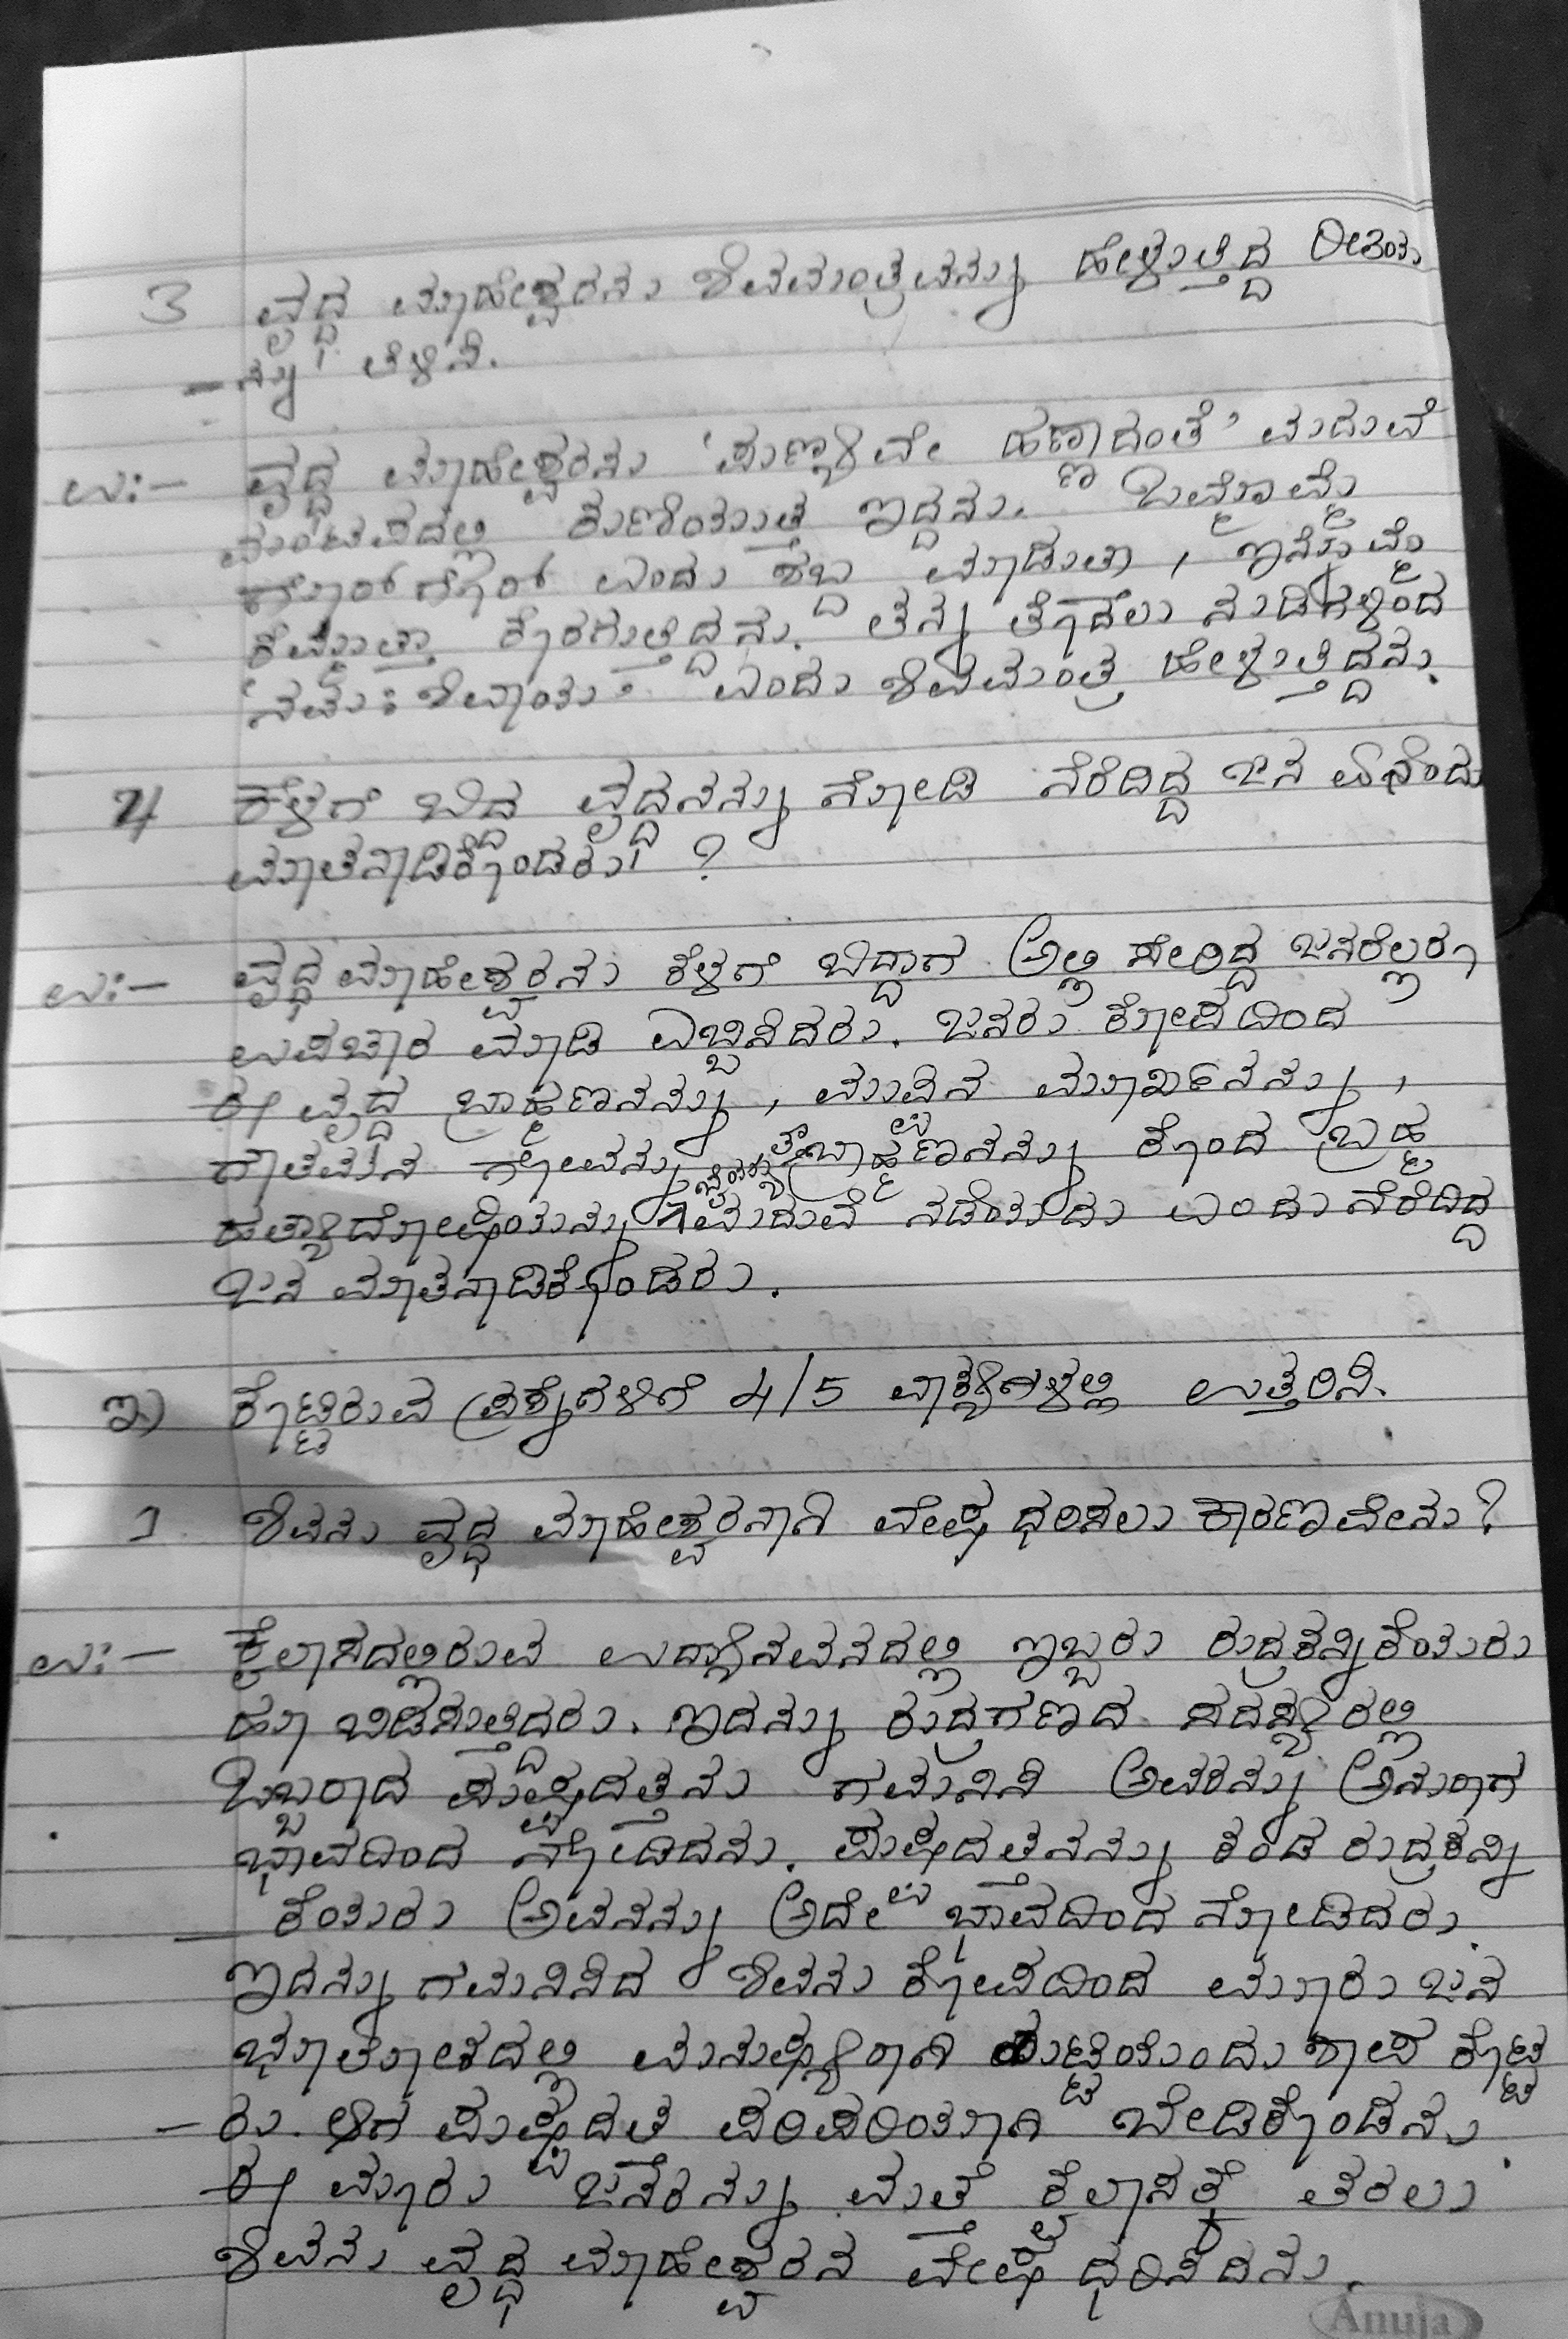 3 ವೃದ್ಧ ಮಾಹೇಶ್ವರನು ಶಿವಮಂತ್ರವನ್ನು ಹೇಳುತ್ತಿದ್ದ ರೀತಿಯ
- ನ್ನು ತಿಳಿಸಿ.
ಉ:- ವೃದ್ಧ ಮಾಹೇಶ್ವರನು 'ಪುಣ್ಯವೇ ಹಣ್ಣಾದಂತೆ' ಮದುವೆ
ಮಂಟಪದಲ್ಲಿ ಕುಣಿಯುತ್ತ ಇದ್ದನು. ಒಮ್ಮೊಮ್ಮೆ
ಗೊರ್ ಗೊರ್ ಎಂದು ಶಬ್ದ ಮಾಡುತಾ, ಇನ್ನೊಮ್ಮೆ
ಕೆಮ್ಮುತ್ತಾ ಕೊರಗುತ್ತಿದ್ದನು. ತನ್ನ ತೊದಲು ನುಡಿಗಳಿಂದ
'ನಮಃ ಶಿವಾಯ' ಎಂದು ಶಿವಮಂತ್ರ ಹೇಳುತ್ತಿದ್ದನು.
4 ಕೆಳಗೆ ಬಿದ್ದ ವೃದ್ಧನನ್ನು ನೋಡಿ ನೆರೆದಿದ್ದ ಜನ ಏನೆಂದು
ಮಾತನಾಡಿಕೊಂಡರು ?
ಉ:- ವೃದ್ಧ ಮಾಹೇಶ್ವರನು ಕೆಳಗೆ ಬಿದ್ದಾಗ ಅಲ್ಲಿ ಸೇರಿದ್ದ ಜನರೆಲ್ಲರೂ
ಉಪಚಾರ ಮಾಡಿ ಎಬ್ಬಿಸಿದರು. ಜನರು ಕೋಪದಿಂದ
ಈ ವೃದ್ಧ ಬ್ರಾಹ್ಮಣನನ್ನು, ಮುಪ್ಪಿನ ಮೂರ್ಖನನ್ನು,
ಗೌತಮನ ಗೋವನ್ನು ಬ್ರಾಹ್ಮಣನನ್ನು ಕೊಂದ ಬ್ರಹ್ಮ
ಹತ್ಯಾದೋಷಿಯನ್ನು ಮದುವೆ ನಡೆಯದು ಎಂದು ನೆರೆದಿದ್ದ
ಜನ ಮಾತನಾಡಿಕೊಂಡರು.
ಇ) ಕೊಟ್ಟಿರುವ ಪ್ರಶ್ನೆಗಳಿಗೆ 4/5 ವಾಕ್ಯಗಳಲ್ಲಿ ಉತ್ತರಿಸಿ.
1. ಶಿವನು ವೃದ್ಧ ಮಾಹೇಶ್ವರನಾಗಿ ವೇಷ ಧರಿಸಲು ಕಾರಣವೇನು?
ಉ:- ಕೈಲಾಸದಲ್ಲಿರುವ ಉದ್ಯಾನವನದಲ್ಲಿ ಇಬ್ಬರು ರುದ್ರಕನ್ನಿಕೆಯರು
ಹೂ ಬಿಡಿಸುತ್ತಿದ್ದರು. ಇದನ್ನು ರುದ್ರಗಣದ ಸದಸ್ಯರಲ್ಲಿ
ಒಬ್ಬರಾದ ಪುಷ್ಪದತ್ತನು ಗಮನಿಸಿ ಅವರನ್ನು ಅನುರಾಗ
ಭಾವದಿಂದ ನೋಡಿದನು. ಪುಷ್ಪದತ್ತನನ್ನು ಕಂಡ ರುದ್ರಕನ್ನಿ
- ಕೆಯರು ಅವನನ್ನು ಅದೇ ಭಾವದಿಂದ ನೋಡಿದರು.
ಇದನ್ನು ಗಮನಿಸಿದ ಶಿವನು ಕೋಪದಿಂದ ಮೂರು ಜನ
ಭೂಲೋಕದಲ್ಲಿ ಮನುಷ್ಯರಾಗಿ ಹುಟ್ಟಿಯೆಂದು ಶಾಪ ಕೊಟ್ಟ
- ರು. ಆಗ ಪುಷ್ಪದತ ಪರಿಪರಿಯಾಗಿ ಬೇಡಿಕೊಂಡನು.
ಈ ಮೂರು ಜನರನ್ನು ಮತ್ತೆ ಕೈಲಾಸಕ್ಕೆ ತರಲು
ಶಿವನು ವೃದ್ಧ ಮಾಹೇಶ್ವರನ ವೇಷ ಧರಿಸಿದನು.
Anuja